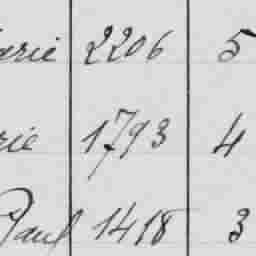 arie 2206 5
rie 1793 4
Paul 1418 3